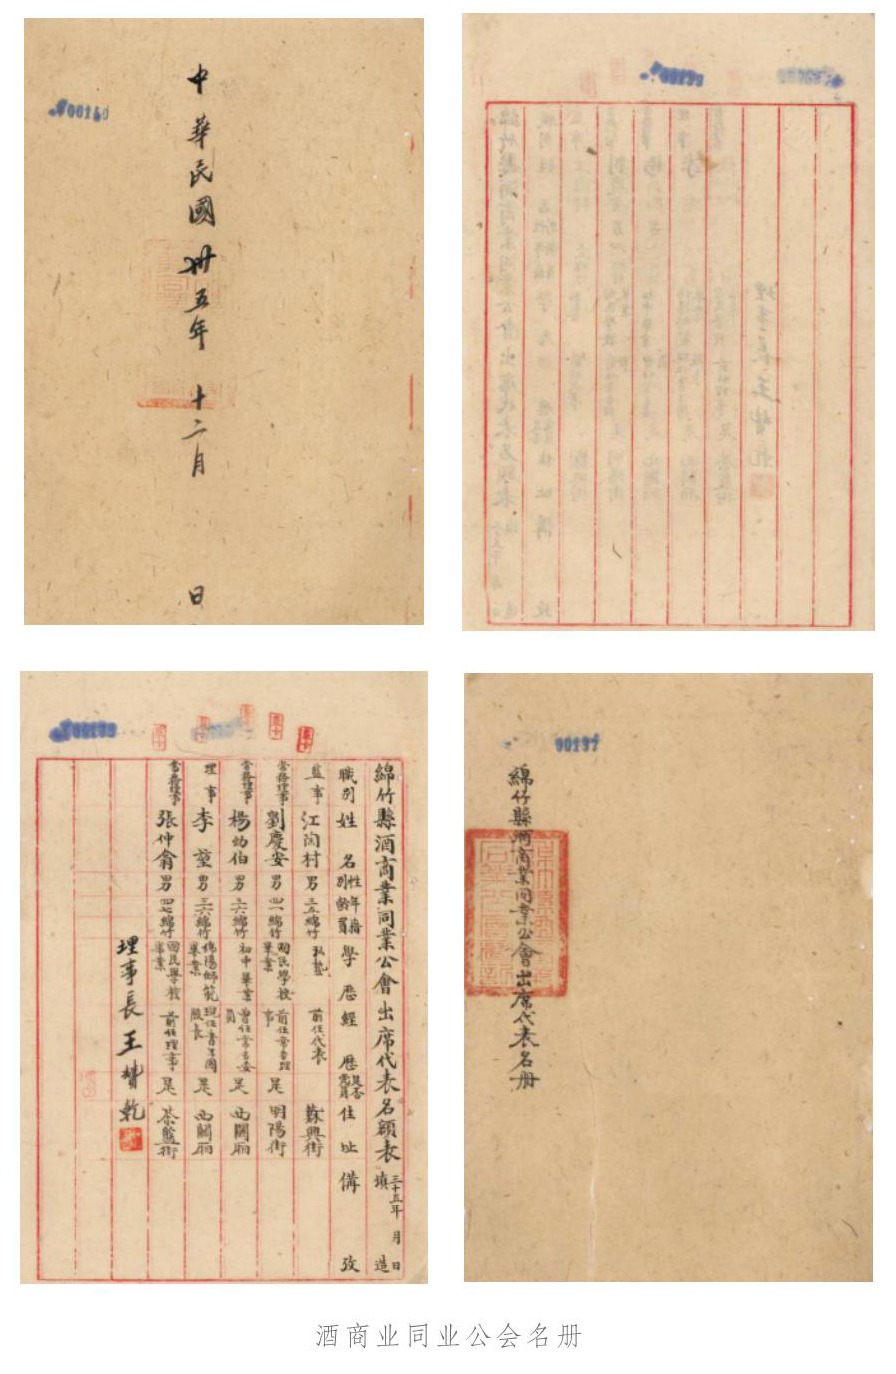 00140
中華民國卅五年 十二月 日
00139
00138
綿竹縣酒商業同業公會出席代表名額表 三十五年 月 日 填造
職別 姓名 性別 年齡 籍貫 學歷 經歷 是否黨員 住址 備攷
監事 江陶村 男 三五 綿竹 私塾 前任代表 蘇興街
常務理事 劉慶安 男 四一 綿竹 國民學校畢業 前任常委理事 是 明陽街
常務理事 楊幼伯 男 三六 綿竹 初中畢業 曾任常务委員 是 西關廂
理事 李堃 男 三六 綿竹 綿陽師範畢業 現任青年團股長 是 西關廂
常務理事 張仲翕 男 四七 綿竹 國民學校畢業 前任理事 是 茶盤街
理事長 王贊乾
00137
綿竹縣酒商業同業公會出席代表名册
酒商业同业公会名册